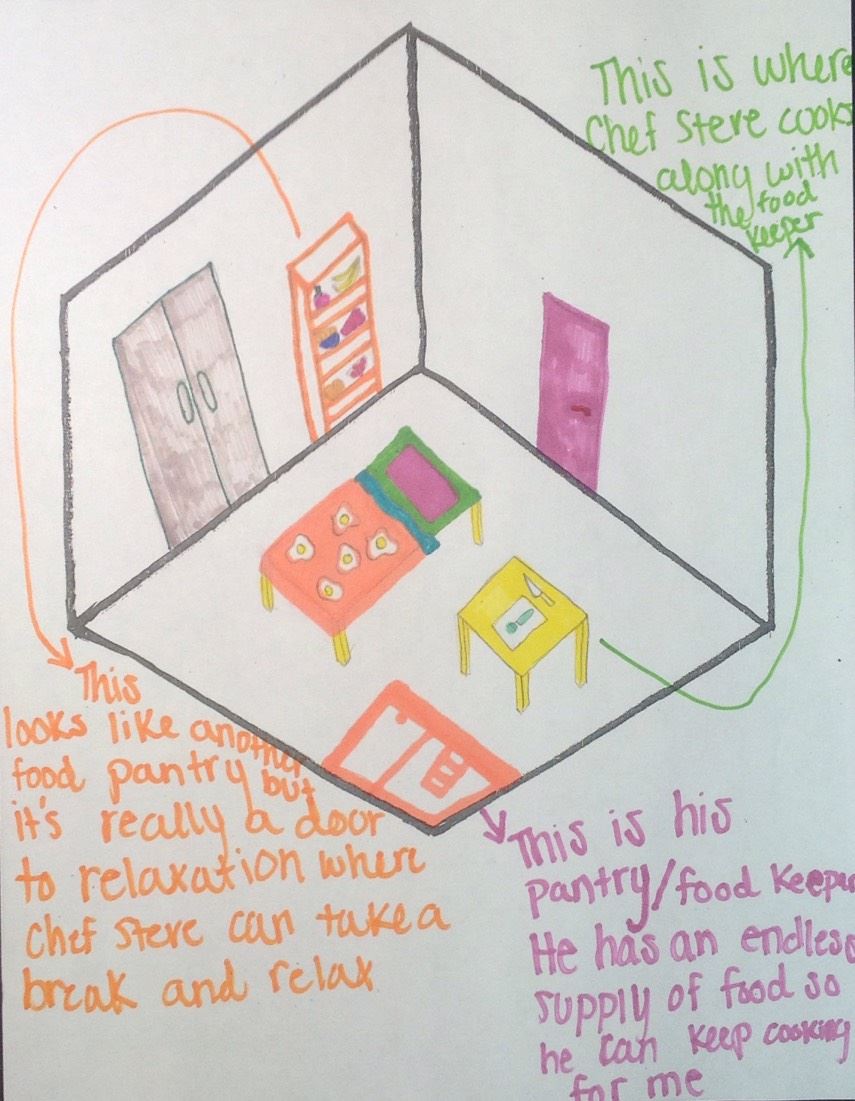 This is where
Chef Steve cooks
along with
the food
keeper
This
looks like another
food pantry but
it's really a door
to relaxation where
Chef Steve can take a
break and relax
This is his
pantry/food keeper
He has an endless
supply of food so
he can keep cooking
for me